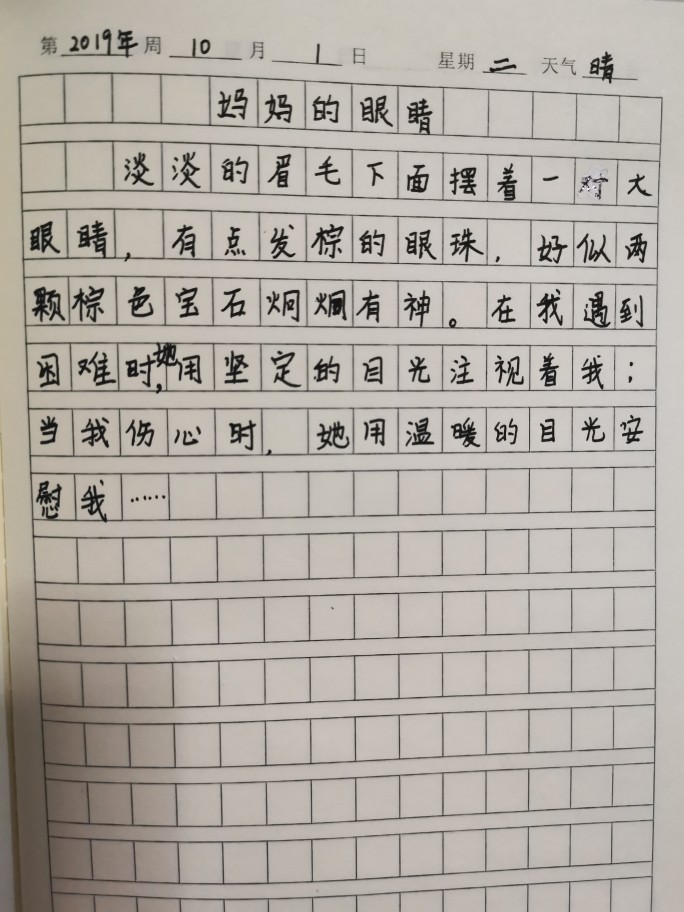 第2019年周10月1日 星期二 天气晴
妈妈的眼睛
淡淡的眉毛下面摆着一对大
眼睛，有点发棕的眼珠，好似两
颗棕色宝石炯炯有神。在我遇到
困难时，她用坚定的目光注视着我；
当我伤心时，她用温暖的目光安
慰我……